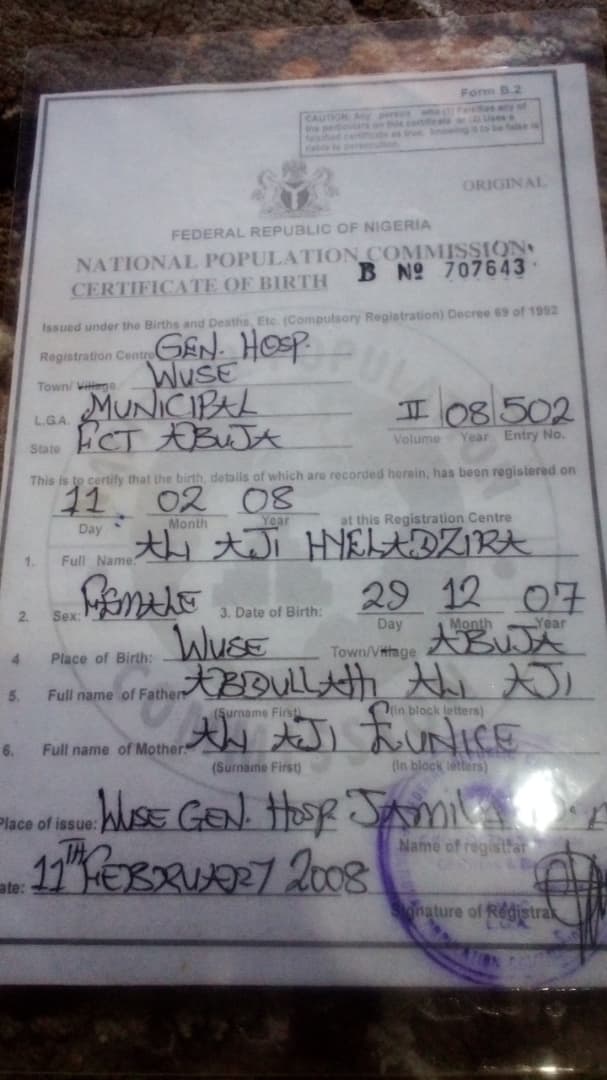 Form B.2
CAUTION: Any person who (1) Falsifies any of
the particulars on this certificate or (2) Uses a
falsified certificate as true, knowing it to be false is
liable to prosecution.
ORIGINAL
FEDERAL REPUBLIC OF NIGERIA
NATIONAL POPULATION COMMISSION
CERTIFICATE OF BIRTH B Nº 707643
Issued under the Births and Deaths, Etc. (Compulsory Registration) Decree 69 of 1992
Registration Centre GEN. HOSP.
Town/Village WUSE
L.G.A. MUNICIPAL
State FCT ABUJA
II 08 502
Volume Year Entry No.
This is to certify that the birth, details of which are recorded herein, has been registered on
11 02 08
Day Month Year at this Registration Centre
1. Full Name: ALI AJI HYELADZIRA
2. Sex: FEMALE 3. Date of Birth: 29 12 07
Day Month Year
4 Place of Birth: WUSE Town/Village ABUJA
5. Full name of Father ABDULLAHI ALI AJI
(Surname First) (In block letters)
6. Full name of Mother: ALI AJI EUNICE
(Surname First) (In block letters)
Place of issue: WUSE GEN. HOSP JAMILA
Name of registrar
ate: 11TH FEBRUARY 2008
Signature of Registrar